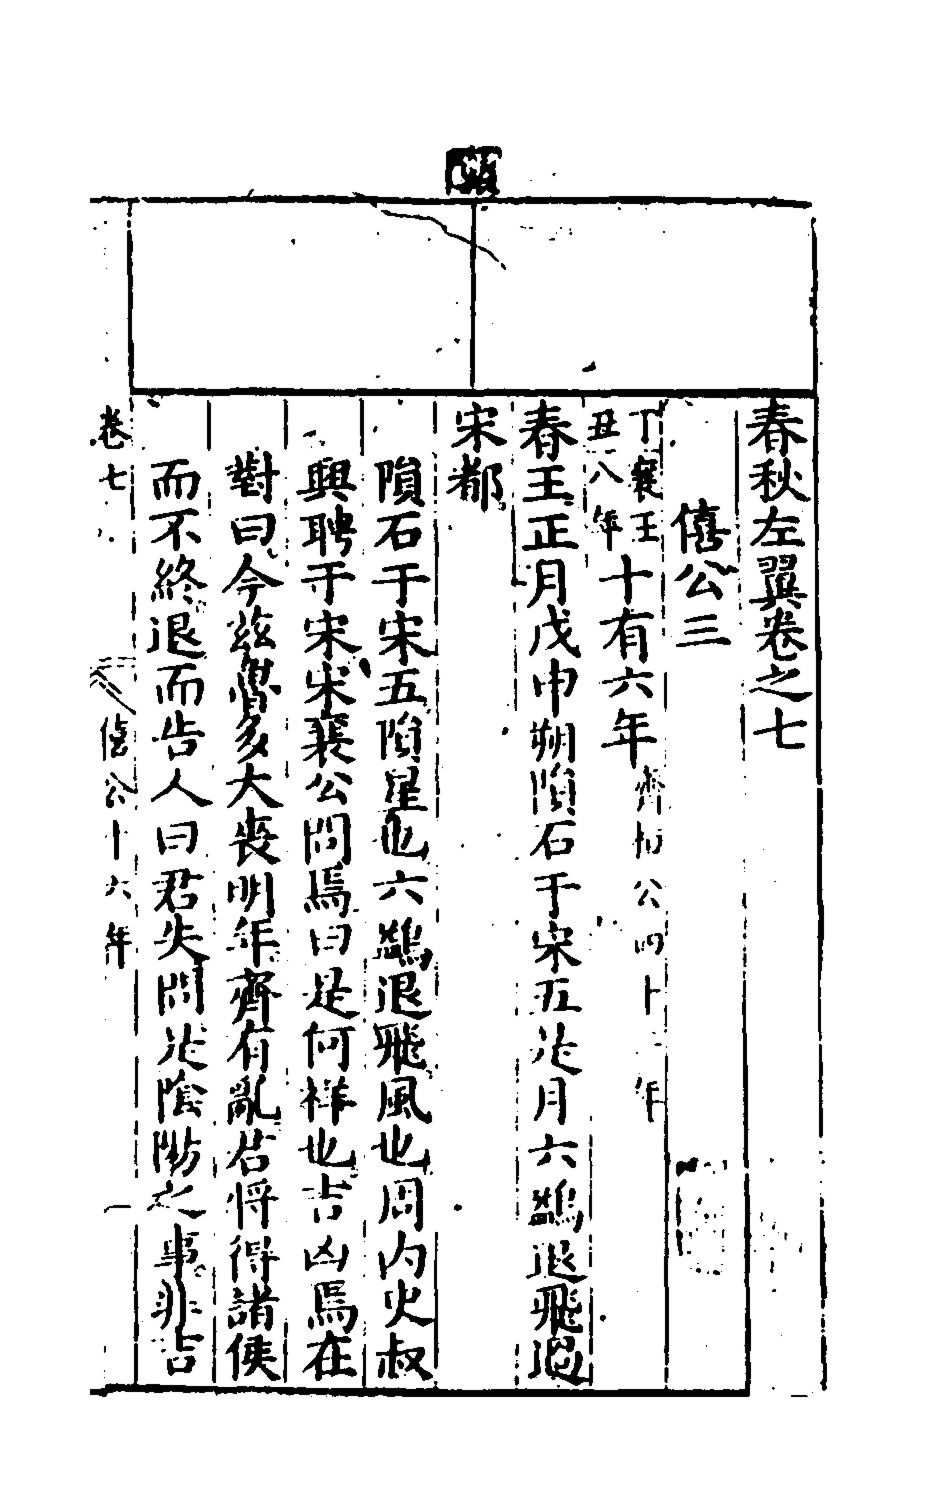 春秋左翼卷之七
僖公三
丁丑襄王八年十有六年齊桓公四十二年
春王正月戊申朔隕石于宋五是月六鷁退飛過
宋都
隕石于宋五隕星也六鷁退飛風也周内史叔
興聘于宋宋襄公問焉曰是何祥也吉凶焉在
對曰今茲魯多大喪明年齊有亂君將得諸侯
而不終退而告人曰君失問是陰陽之事非吉
卷七
僖公十六年
一